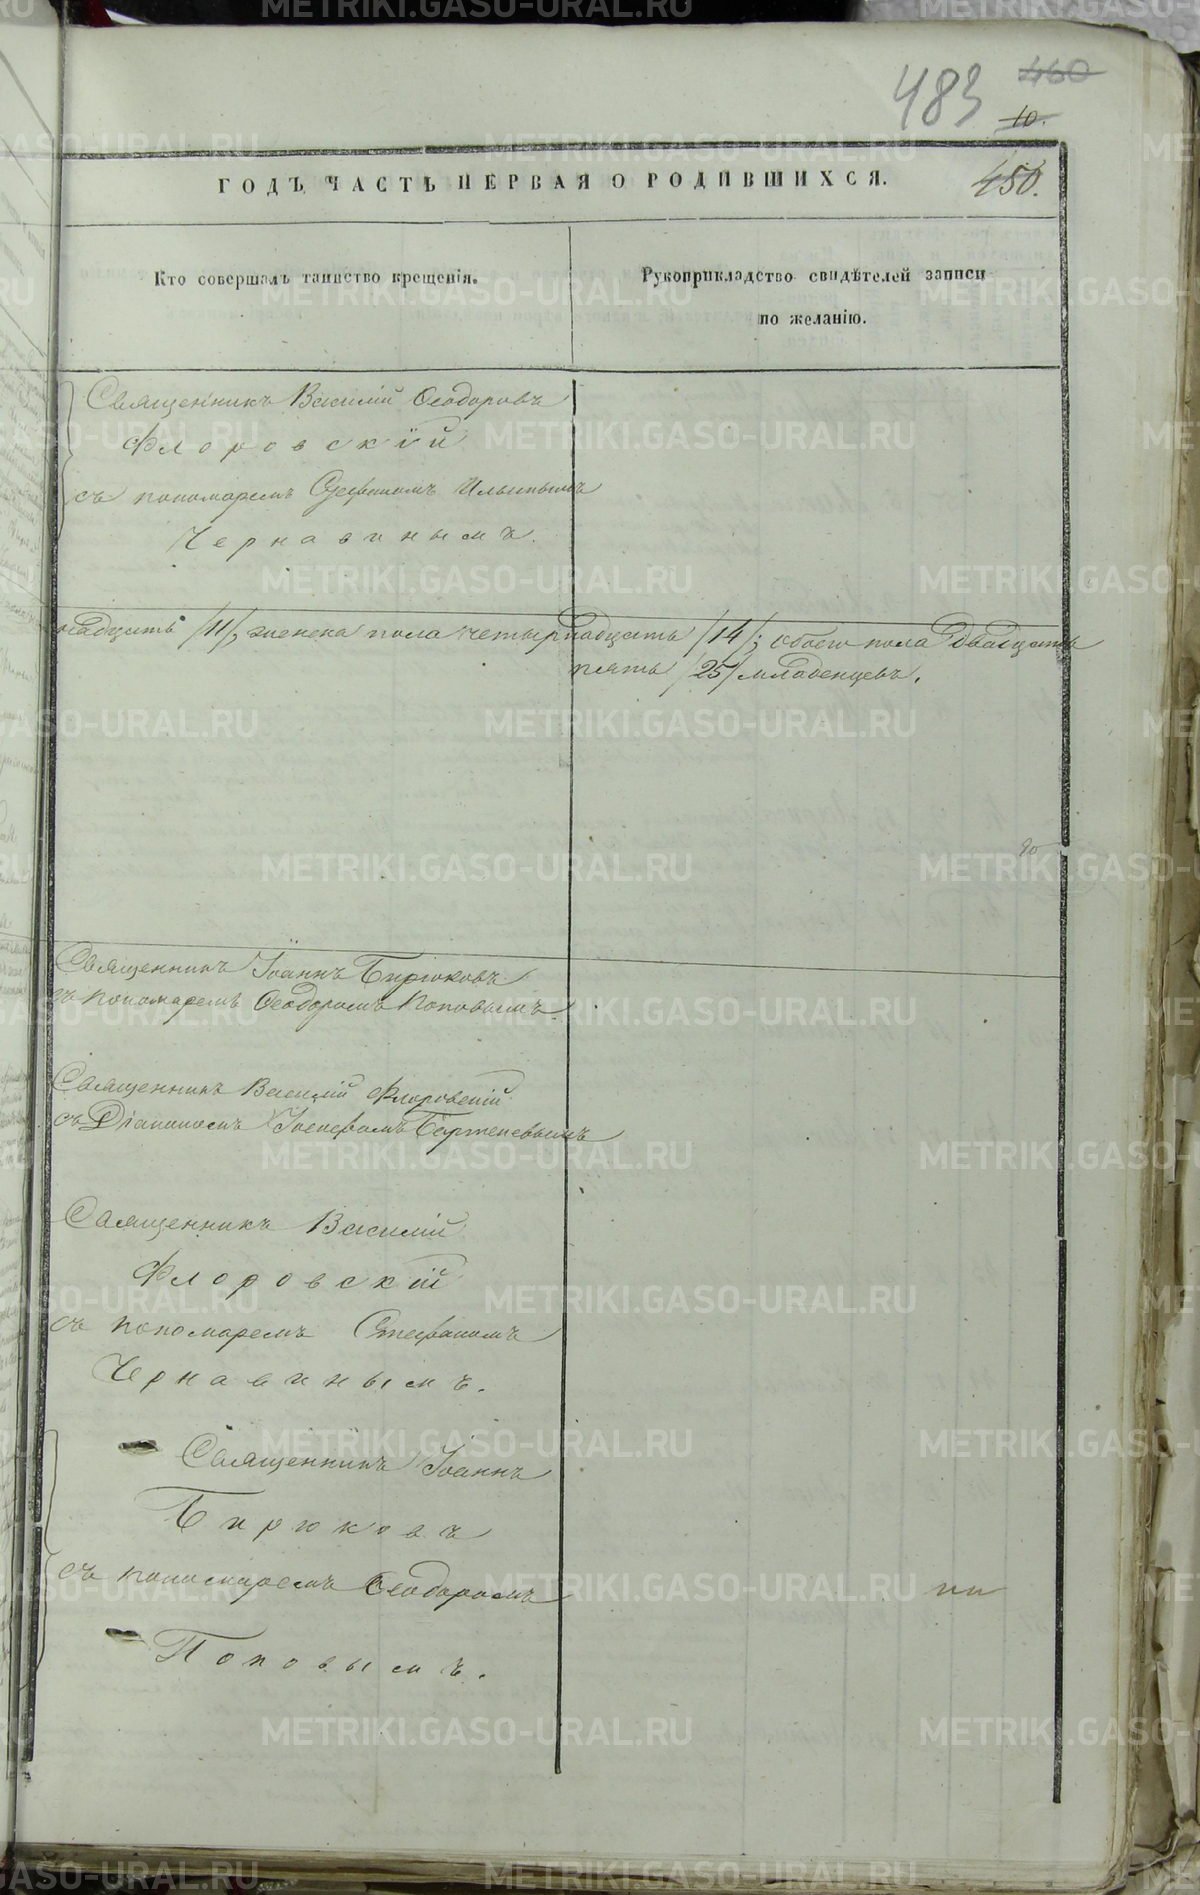 483 460
10.
450.
ГОДЪ, ЧАСТЬ ПЕРВАЯ О РОДИВШИХСЯ.
Кто совершалъ таинство крещенія.
Рукоприкладство свидѣтелей записи
по желанію.
Священникъ Василій Ѳеодоровъ
Флоровскій
съ пономаремъ Стефаномъ Ильинымъ
Чернавинымъ.
надцать /11/, женска пола четырнадцать /14/; обоего пола двадцать
пять /25/ младенцевъ.
Священникъ Іоаннъ Бирюковъ
съ пономаремъ Ѳеодоромъ Поповымъ.
Священникъ Василій Флоровскій
съ Діакономъ Іосифомъ
Священникъ Василій
Флоровскій
съ пономаремъ Стефаномъ
Чернавинымъ.
Священникъ Іоаннъ
Бирюковъ
съ пономаремъ Ѳеодоромъ
Поповымъ.
METRIKI.GASO-URAL.RU